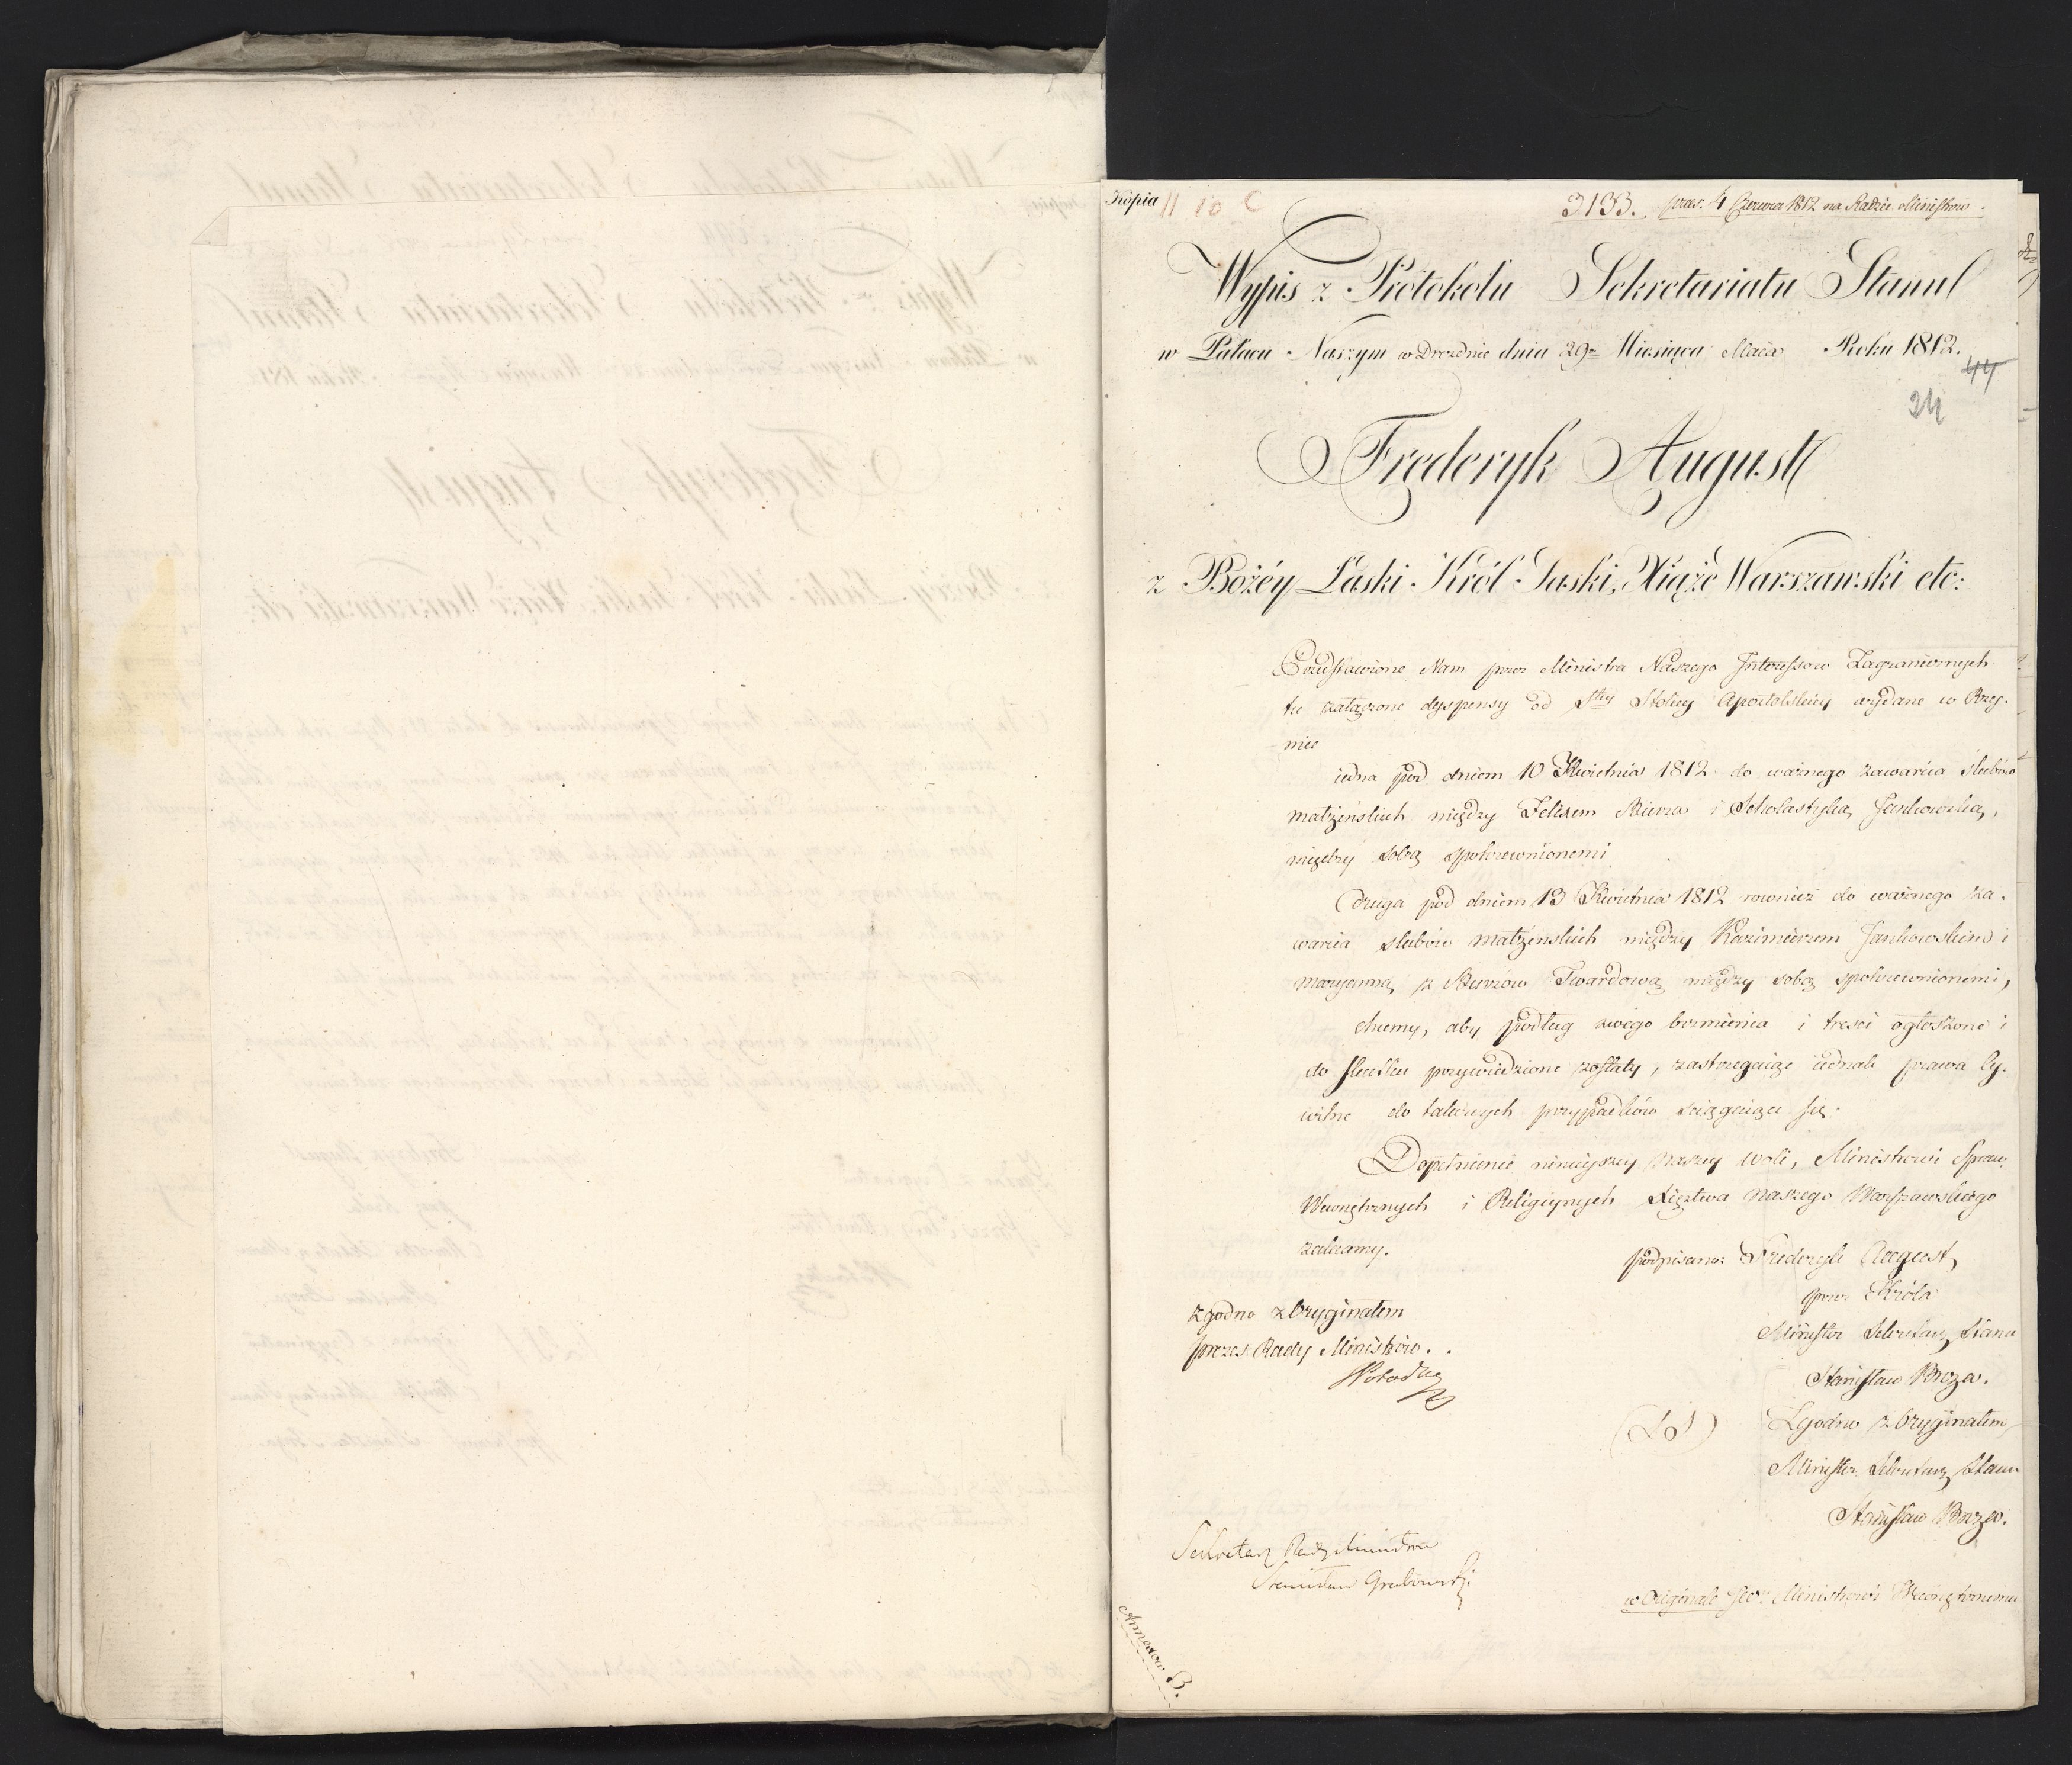 Kopia
11 10 C
3133. praes. 4 Czerwca 1812 na Radzie Ministrow.
Wypis z Protokołu Sekretariatu Stanu
w Pałacu Naszym w Dreznie dnia 29. Miesiąca Maia Roku 1812.
44
24
Frederyk August
z Bożéy Łaski Król Saski, Xiąże Warszawski etc:
Przedstawione Nam przez Ministra Naszego Interessow Zagranicznych
tu załączone dyspensy od Stéy Stolicy Apostolskiey wydane w Rzy-
mie
iedna pod dniem 10 Kwietnia 1812 do ważnego zawarcia ślubów
małżeńskich między Felixem Skurza i Scholastyką Jankowską,
między sobą spokrewnionemi
druga pod dniem 13 Kwietnia 1812 rownież do ważnego za-
warcia slubów małżenskich między Kazimierzem Jankowskim i
Maryanną z Skurzow Twardową między sobą spokrewnionemi,
chcemy, aby podług swego brzmienia i tresci ogłoszone i
do skutku przywiedzione zostały, zastrzegaiąc iednak prawa Cy-
wilne do takowych przypadków sciągaiące się.
Dopełnienie ninieyszey naszey woli, Ministrowi Spraw
Wewnętrznych i Religiynych Xięstwa naszego Warszawskiego
zalecamy.
podpisano: Frederyk August
przez Króla
Minister Sekretarz Stanu
Stanisław Breza.
Zgodno z Oryginałem
prezes Rady Ministrów.
(LS)
Zgodno z Oryginałem
Minister Sekretarz Stanu
Stanisław Breza.
Sekretarz Rady Ministrow
Stanisław Grabowski
w Originale JW. Ministrowi Wewnętrznemu
Annexow 3.